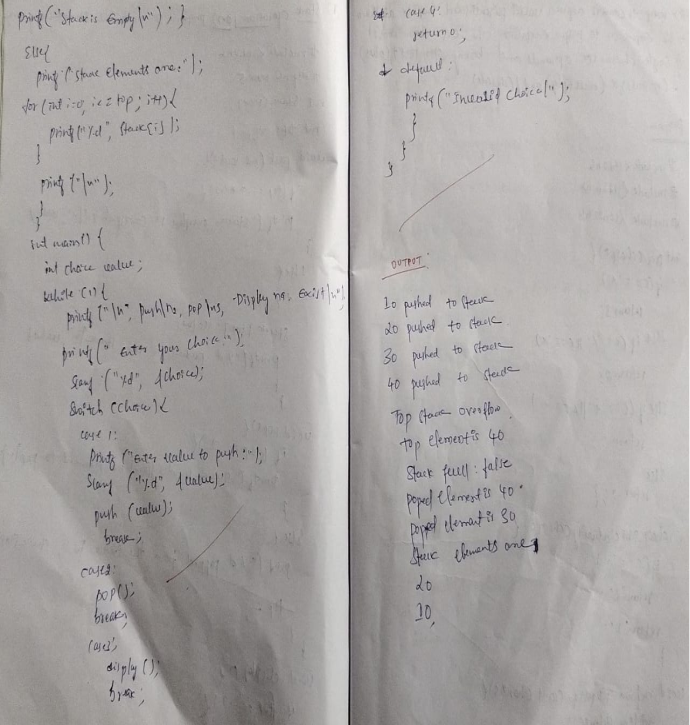 printf("Stack is Empty\n"); }
Else{
printf("Stack Elements are:");
for (int i=0; i<=top; i++){
printf("%d", stack[i]);
}
printf("\n");
}
}
int main() {
int choice value;
while (1){
printf("\n", push\n2, pop\n3, Display n4, Exist\n");
printf(" Enter your choice:");
Scanf ("%d", &choice);
Switch (choice){
case 1:
printf ("Enter value to push:");
Scanf ("%d", &value);
push (value);
break;
case2:
pop();
break;
case3;
display ();
break;
case 4:
return 0;
default:
printf ("Invalid choice\n");
}
}
}
OUTPUT:
10 pushed to stack
20 pushed to stack
30 pushed to stack
40 pushed to stack
Top stack overflow.
top element is 40
Stack full: false
poped element is 40.
popped element is 30
Stack elements are
20
10,